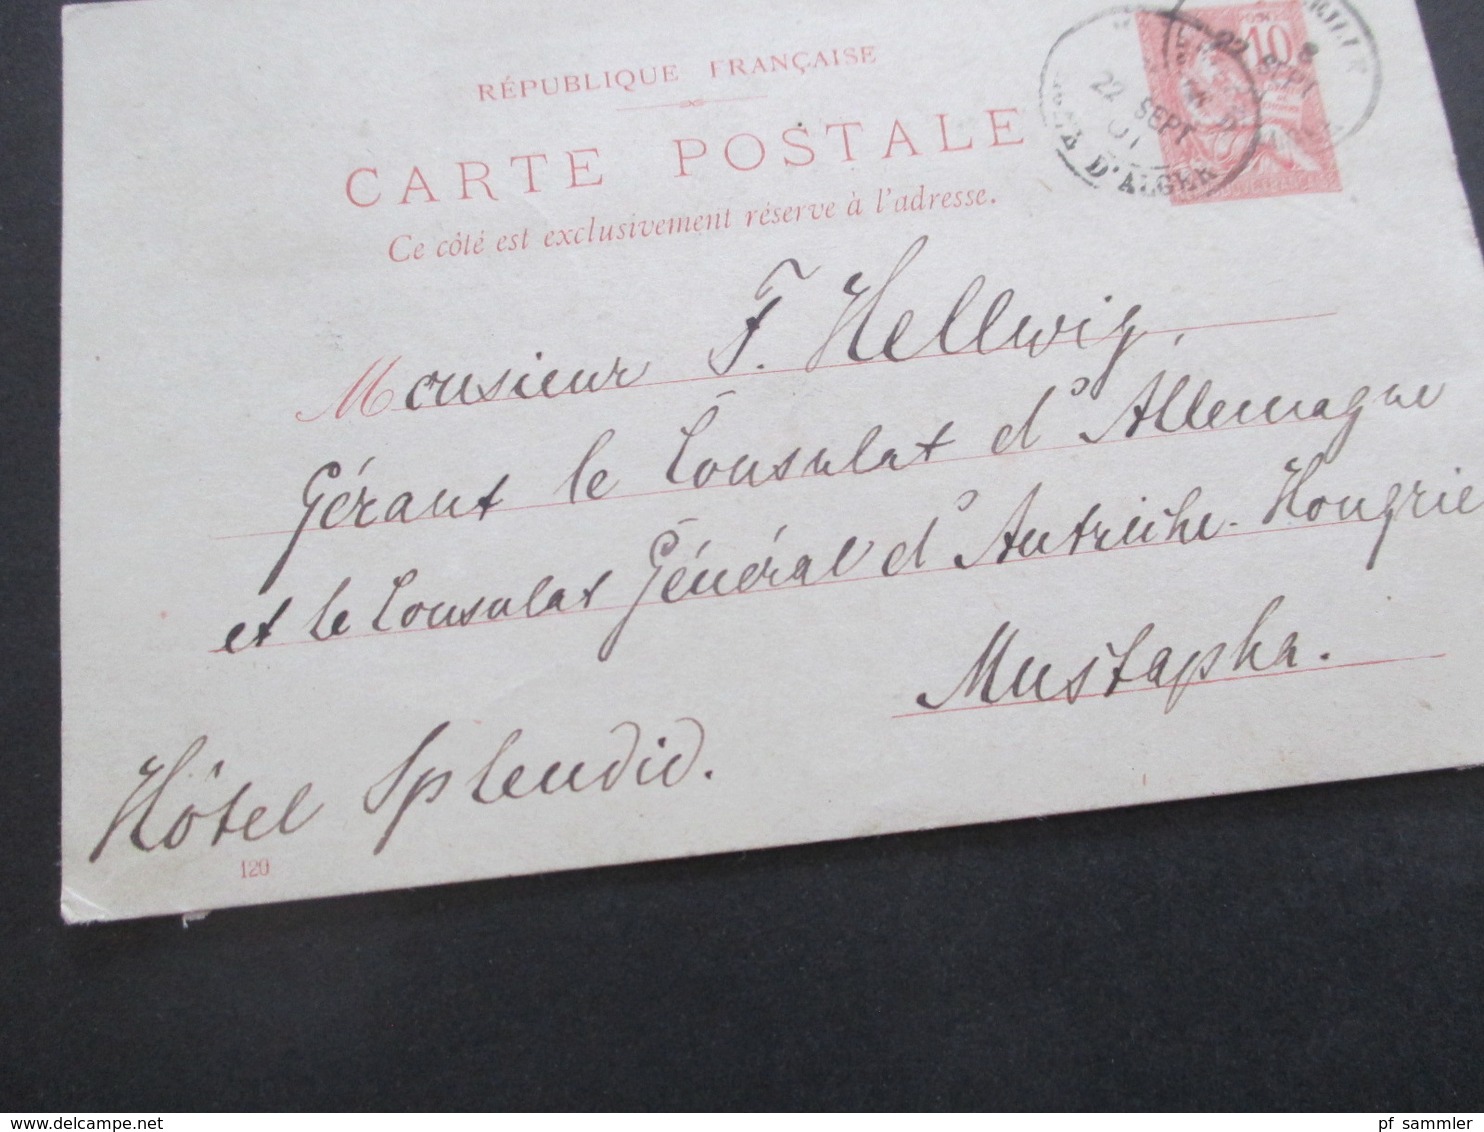 RÉPUBLIQUE FRANÇAISE
CARTE POSTALE
Ce côté est exclusivement réservé à l'adresse.
10
22 SEPT
01
D'ALGER
Monsieur F. Hellwig,
Gérant le Consulat d'Allemagne
et le Consulat Général d'Autriche-Hongrie
Mustapha.
Hôtel Splendid.
120
www.delcampe.net
pf_sammler